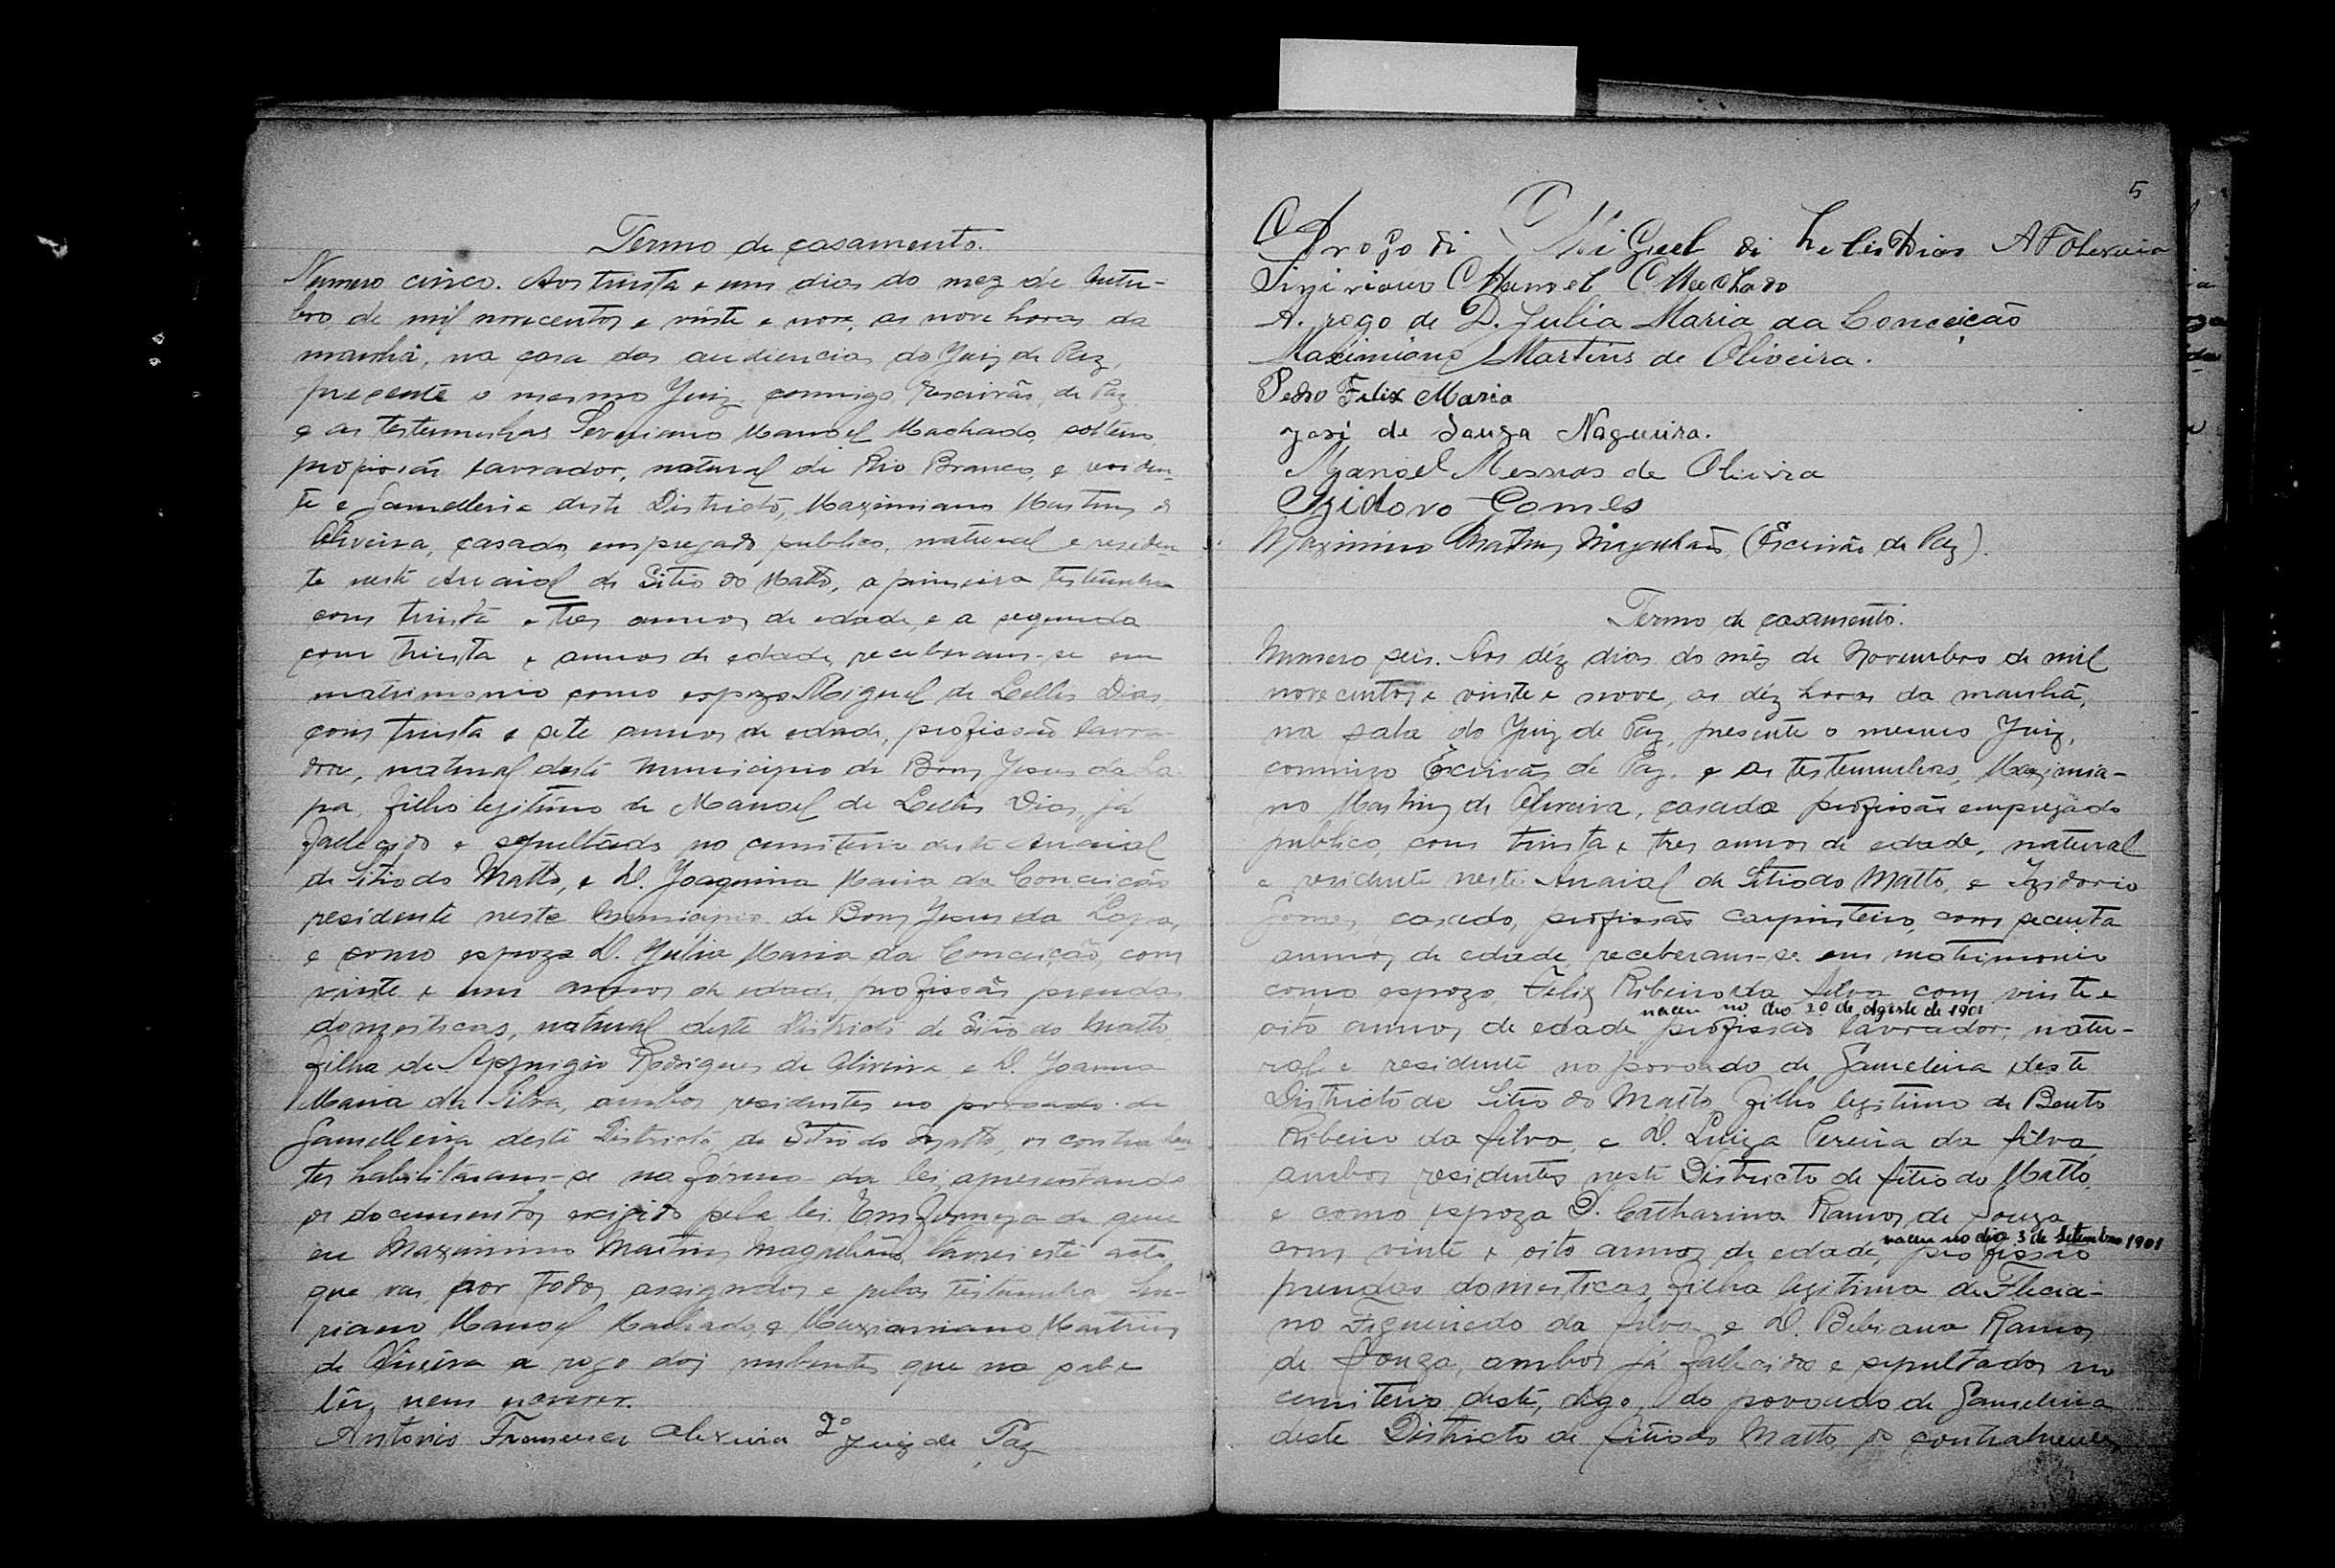 Termo de casamento.
Numero cinco. Aos trinta e um dias do mez de Outu-
bro, de mil novecentos e vinte e nove, as nove horas da
manhã, na casa das audiencias do Juiz de Paz,
presente o mesmo Juiz commigo Escrivão de Paz
e as testemunhas Severiano Manoel Machado, solteiro,
profissão lavrador, natural de Rio Branco, e residen-
te e Gamelleira deste Districto, Maximiano Martins de
Oliveira, casado, empregado publico, natural e residen
te neste Arraial de Sitio do Matto, a primeira testemunha
com trinta e tres annos de edade, e a segunda
com trinta e annos de edade, receberam-se em
matrimonio como espozo Miguel de Lellis Dias,
com trinta e sete annos de edade, profissão lavra-
dor, natural deste Municipio de Bom Jesus da La
pa, filho legitimo de Manoel de Lellis Dias, já
fallecido e sepultado no cemiterio deste Arraial
de Sitio do Matto, e D. Joaquina Maria da Conceição
residente neste Municipio de Bom Jesus da Lapa,
e como espoza D. Julia Maria da Conceição, com
vinte e um annos de edade, profissão prendas
domesticas, natural deste Districto de Sitio do Matto,
filha de Rodrigues de Oliveira e D. Joanna
Maria da Silva, ambos residentes no povoado de
Gamelleira deste Districto de Sitio do Matto, os contrahen-
tes habilitaram-se na fórma da lei, apresentando
os documentos exigido pela lei. Em firmeza de que
eu Maximino Martins Magalhães, lavrei este acto
que vai por todos assignados e pelas testemunha Seve-
riano Manoel Machado, e Maximiano Martins
de Oliveira a rogo dos nubentes que na sabe
lêr, nem escrever.
Antonio Francisco Oliveira 2º Juiz de Paz
5
A rogo di Miguel di Lelis Dias A F Oliveira
Siviriano Manoel Machado
A. rogo de D. Julia Maria da Conceição
Maximiano Martins de Oliveira.
Pedro Felix Maria
José de Souza Nogueira.
Manoel Messias de Oliveira
Izidoro Gomes
Maximino Martins Magalhães (Escrivão de Paz).
Termo de casamento.
Numero seis. Aos déz dias do mês de Novembro de mil
novecentos e vinte e nove, as déz horas da manhã,
na sala do Juiz de Paz, presente o mesmo Juiz,
commigo Escrivão de Paz, e as testemunhas, Maximia-
no Martins de Oliveira, casado profissão empregado
publico, com trinta e tres annos de edade, natural
e residente neste Arraial de Sitio do Matto, e Izidorio
Gomes, casado, profissão carpinteiro, com secenta
annos de edade, receberam-se em matrimonio
como espozo, Felix Ribeiro da Silva com vinte e
naceu no dia 20 de Agosto de 1901
oito annos de edade profissão lavrador, natu-
ral e residente no povoado de Gameleira deste
Districto de Sitio do Matto filho legitimo de Bento
Ribeiro da Silva, e D. Luiza Pereira da Silva,
ambos residentes neste Districto de Sitio do Matto,
e como espoza D. Catharina Ramos de Souza
naceu no dia 3 de Setembro 1901
com vinte e oito annos de edade, profissão
prendas domesticas, filha legitima de Flicia-
no Figueiredo da Silva e D. Bibiana Ramos
de Souza, ambos já fallecidos e sepultados no
cemiterio deste, digo, do povoado de Gameleira
deste Districto de Sitio do Matto, os contrahentes